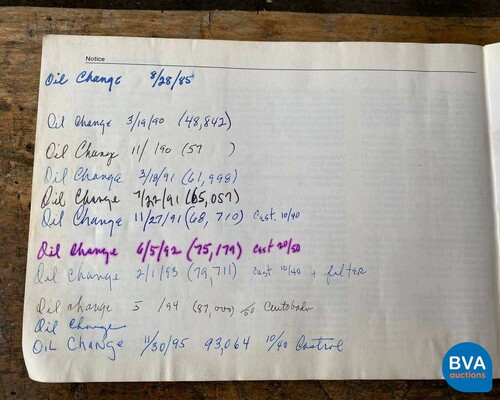 Notice
Oil Change 8/28/85
Oil Change 3/19/90 (48,842)
Oil Chang 11/ 190 (57 )
Oil Change 3/18/91 (61,998)
Oil Change 7/22/91 (65,057)
Oil Change 11/27/91 (68,710) Cast. 10/40
Oil Change 6/5/92 (75,179) Cast 20/50
Oil Change 2/1/93 (79,711) Cast 10/40 + filter
Oil change 5 /94 (87,000)
Oil Change
OIL CHANGE 11/30/95 93,064 10/40 Castrol
BVA
auctions